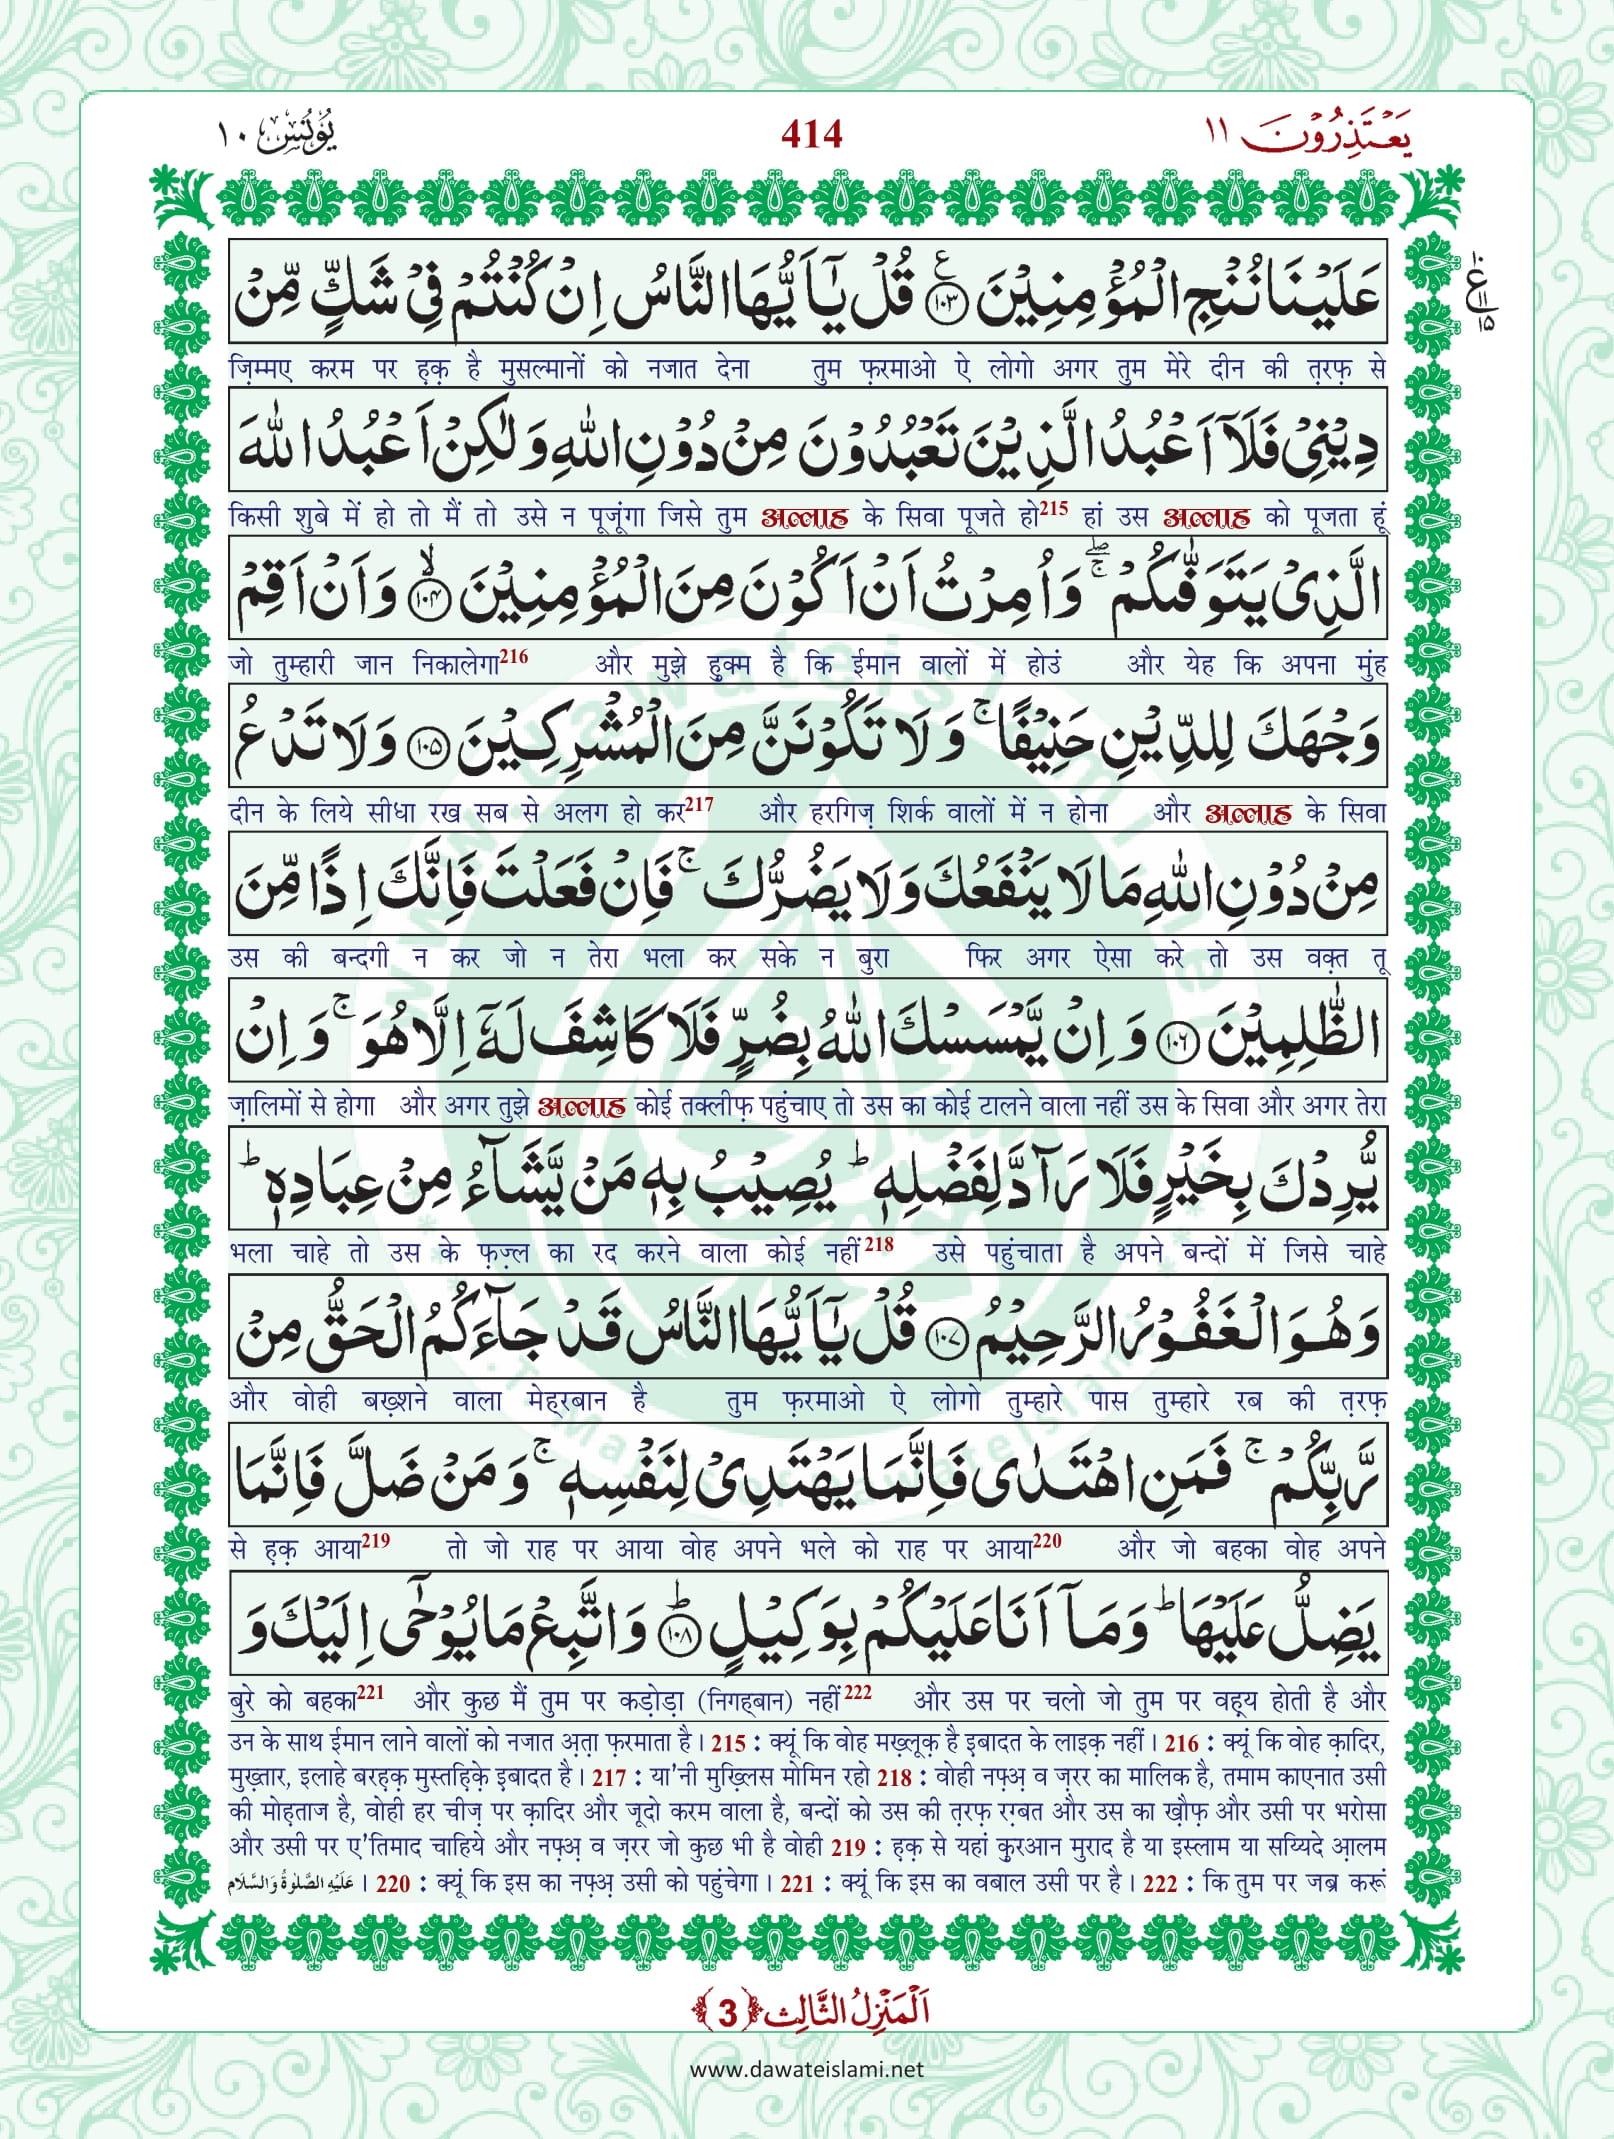 یَعْتَذِرُوْنَ ١١
414
یُوْنُس ١٠
عَلَیْنَا نُنْجِ الْمُؤْمِنِیْنَ ۠﴿۱۰۳﴾ قُلْ یٰۤاَیُّهَا النَّاسُ اِنْ كُنْتُمْ فِیْ شَكٍّ مِّنْ
ज़िम्मए करम पर ह़क़ है मुसल्मानों को नजात देना तुम फ़रमाओ ऐ लोगो अगर तुम मेरे दीन की त़रफ़ से
دِیْنِیْ فَلَاۤ اَعْبُدُ الَّذِیْنَ تَعْبُدُوْنَ مِنْ دُوْنِ اللّٰهِ وَ لٰكِنْ اَعْبُدُ اللّٰهَ
किसी शुबे में हो तो मैं तो उसे न पूजूंगा जिसे तुम अल्लाह के सिवा पूजते हो215 हां उस अल्लाह को पूजता हूं
الَّذِیْ یَتَوَفّٰىكُمْ ۚۖ وَ اُمِرْتُ اَنْ اَكُوْنَ مِنَ الْمُؤْمِنِیْنَ ۙ﴿۱۰۴﴾ وَ اَنْ اَقِمْ
जो तुम्हारी जान निकालेगा216 और मुझे हुक्म है कि ईमान वालों में होउं और येह कि अपना मुंह
وَجْهَكَ لِلدِّیْنِ حَنِیْفًا ۚ وَ لَا تَكُوْنَنَّ مِنَ الْمُشْرِكِیْنَ ﴿۱۰۵﴾ وَ لَا تَدْعُ
दीन के लिये सीधा रख सब से अलग हो कर217 और हरगिज़ शिर्क वालों में न होना और अल्लाह के सिवा
مِنْ دُوْنِ اللّٰهِ مَا لَا یَنْفَعُكَ وَ لَا یَضُرُّكَ ۚ فَاِنْ فَعَلْتَ فَاِنَّكَ اِذًا مِّنَ
उस की बन्दगी न कर जो न तेरा भला कर सके न बुरा फिर अगर ऐसा करे तो उस वक़्त तू
الظّٰلِمِیْنَ ﴿۱۰۶﴾ وَ اِنْ یَّمْسَسْكَ اللّٰهُ بِضُرٍّ فَلَا كَاشِفَ لَهٗۤ اِلَّا هُوَ ۚ وَ اِنْ
ज़ालिमों से होगा और अगर तुझे अल्लाह कोई तक्लीफ़ पहुंचाए तो उस का कोई टालने वाला नहीं उस के सिवा और अगर तेरा
یُّرِدْكَ بِخَیْرٍ فَلَا رَآدَّ لِفَضْلِهٖ ؕ یُصِیْبُ بِهٖ مَنْ یَّشَآءُ مِنْ عِبَادِهٖ ؕ
भला चाहे तो उस के फ़ज़्ल का रद करने वाला कोई नहीं218 उसे पहुंचाता है अपने बन्दों में जिसे चाहे
وَ هُوَ الْغَفُوْرُ الرَّحِیْمُ ﴿۱۰۷﴾ قُلْ یٰۤاَیُّهَا النَّاسُ قَدْ جَآءَكُمُ الْحَقُّ مِنْ
और वोही बख़्शने वाला मेहरबान है तुम फ़रमाओ ऐ लोगो तुम्हारे पास तुम्हारे रब की त़रफ़
رَّبِّكُمْ ۚ فَمَنِ اهْتَدٰی فَاِنَّمَا یَهْتَدِیْ لِنَفْسِهٖ ۚ وَ مَنْ ضَلَّ فَاِنَّمَا
से ह़क़ आया219 तो जो राह पर आया वोह अपने भले को राह पर आया220 और जो बहका वोह अपने
یَضِلُّ عَلَیْهَا ؕ وَ مَاۤ اَنَا عَلَیْكُمْ بِوَكِیْلٍ ؕ﴿۱۰۸﴾ وَ اتَّبِعْ مَا یُوْحٰۤی اِلَیْكَ وَ
बुरे को बहका221 और कुछ मैं तुम पर कड़ोड़ा (निगहबान) नहीं222 और उस पर चलो जो तुम पर वह़्य होती है और
उन के साथ ईमान लाने वालों को नजात अ़त़ा फ़रमाता है। 215 : क्यूं कि वोह मख़्लूक़ है इ़बादत के लाइक़ नहीं। 216 : क्यूं कि वोह क़ादिर,
मुख़्तार, इलाहे बरह़क़ मुस्तह़िक़े इबादत है। 217 : या'नी मुख़्लिस मोमिन रहो 218 : वोही नफ़्अ़ व ज़रर का मालिक है, तमाम काएनात उसी
की मोह़ताज है, वोही हर चीज़ पर क़ादिर और जूदो करम वाला है, बन्दों को उस की त़रफ़ रग़्बत और उस का ख़ौफ़ और उसी पर भरोसा
और उसी पर ए'तिमाद चाहिये और नफ़्अ़ व ज़रर जो कुछ भी है वोही 219 : ह़क़ से यहां क़ुरआन मुराद है या इस्लाम या सय्यिदे आ़लम
عَلَیْهِ الصَّلٰوةُ وَالسَّلَام । 220 : क्यूं कि इस का नफ़्अ़ उसी को पहुंचेगा। 221 : क्यूं कि इस का वबाल उसी पर है। 222 : कि तुम पर जब्र करूं
اَلْمَنْزِلُ الثَّالِث ﴿3﴾
www.dawateislami.net